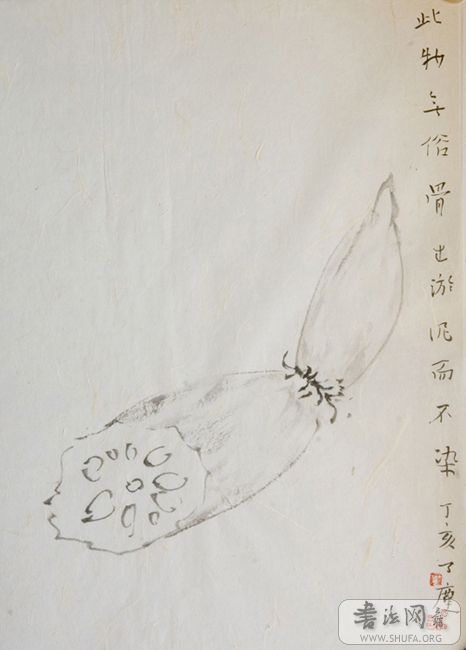 此物无俗骨出淤泥而不染丁亥了庐
書法网
WWW.SHUFA.ORG